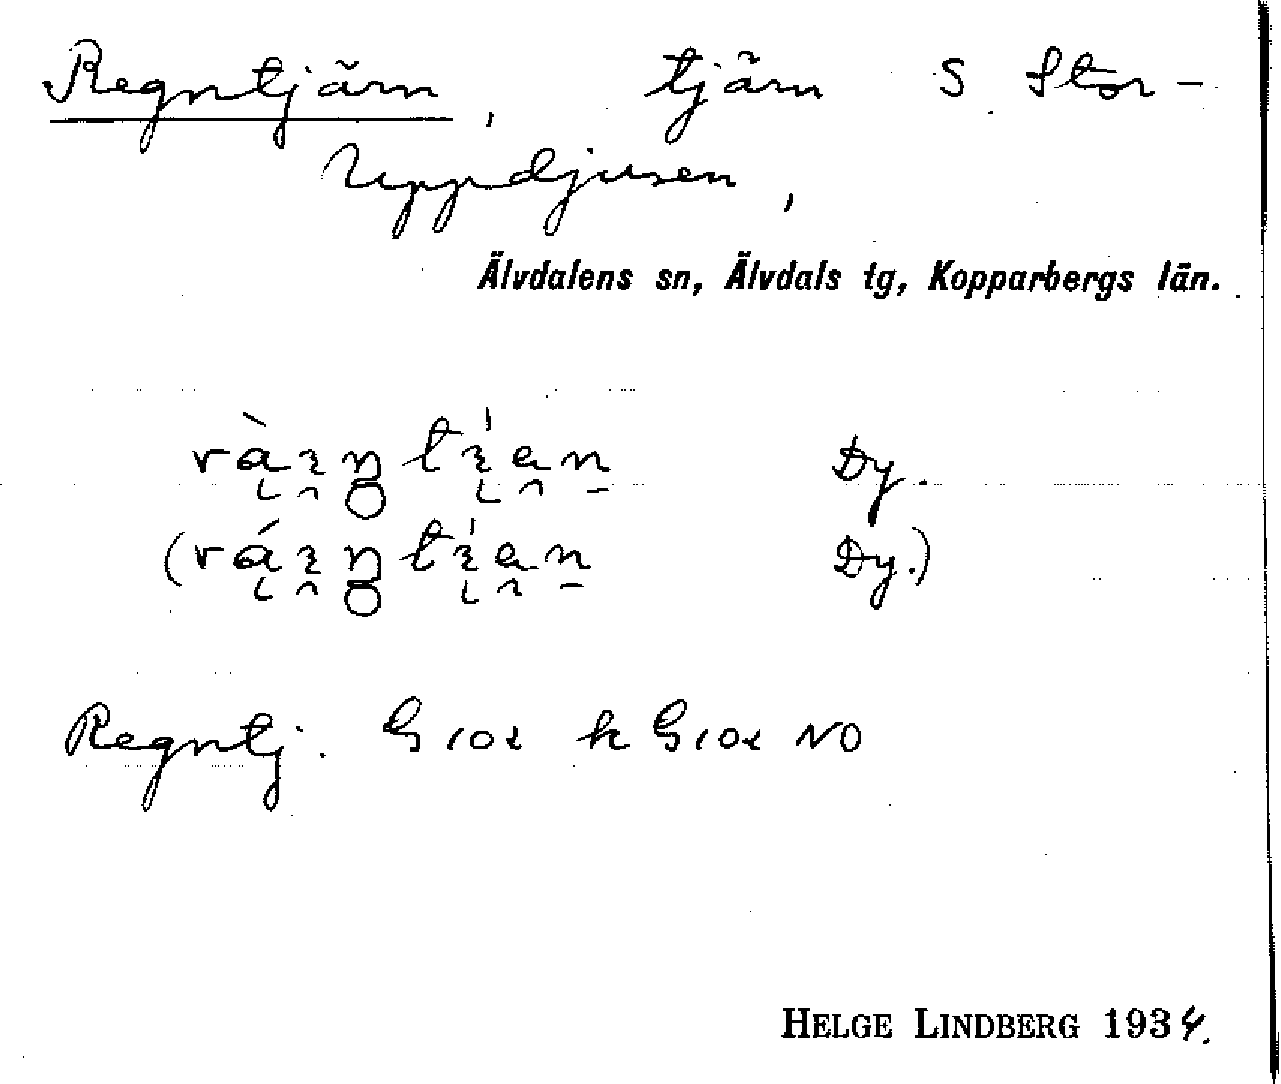 Regntjärn, tjärn S Stor-
Uppdjusen,
Älvdalens sn, Älvdals tg, Kopparbergs län.
Dy.
Dy.)
Regntj. G 101 k G 101 NO
HELGE LINDBERG 1934.